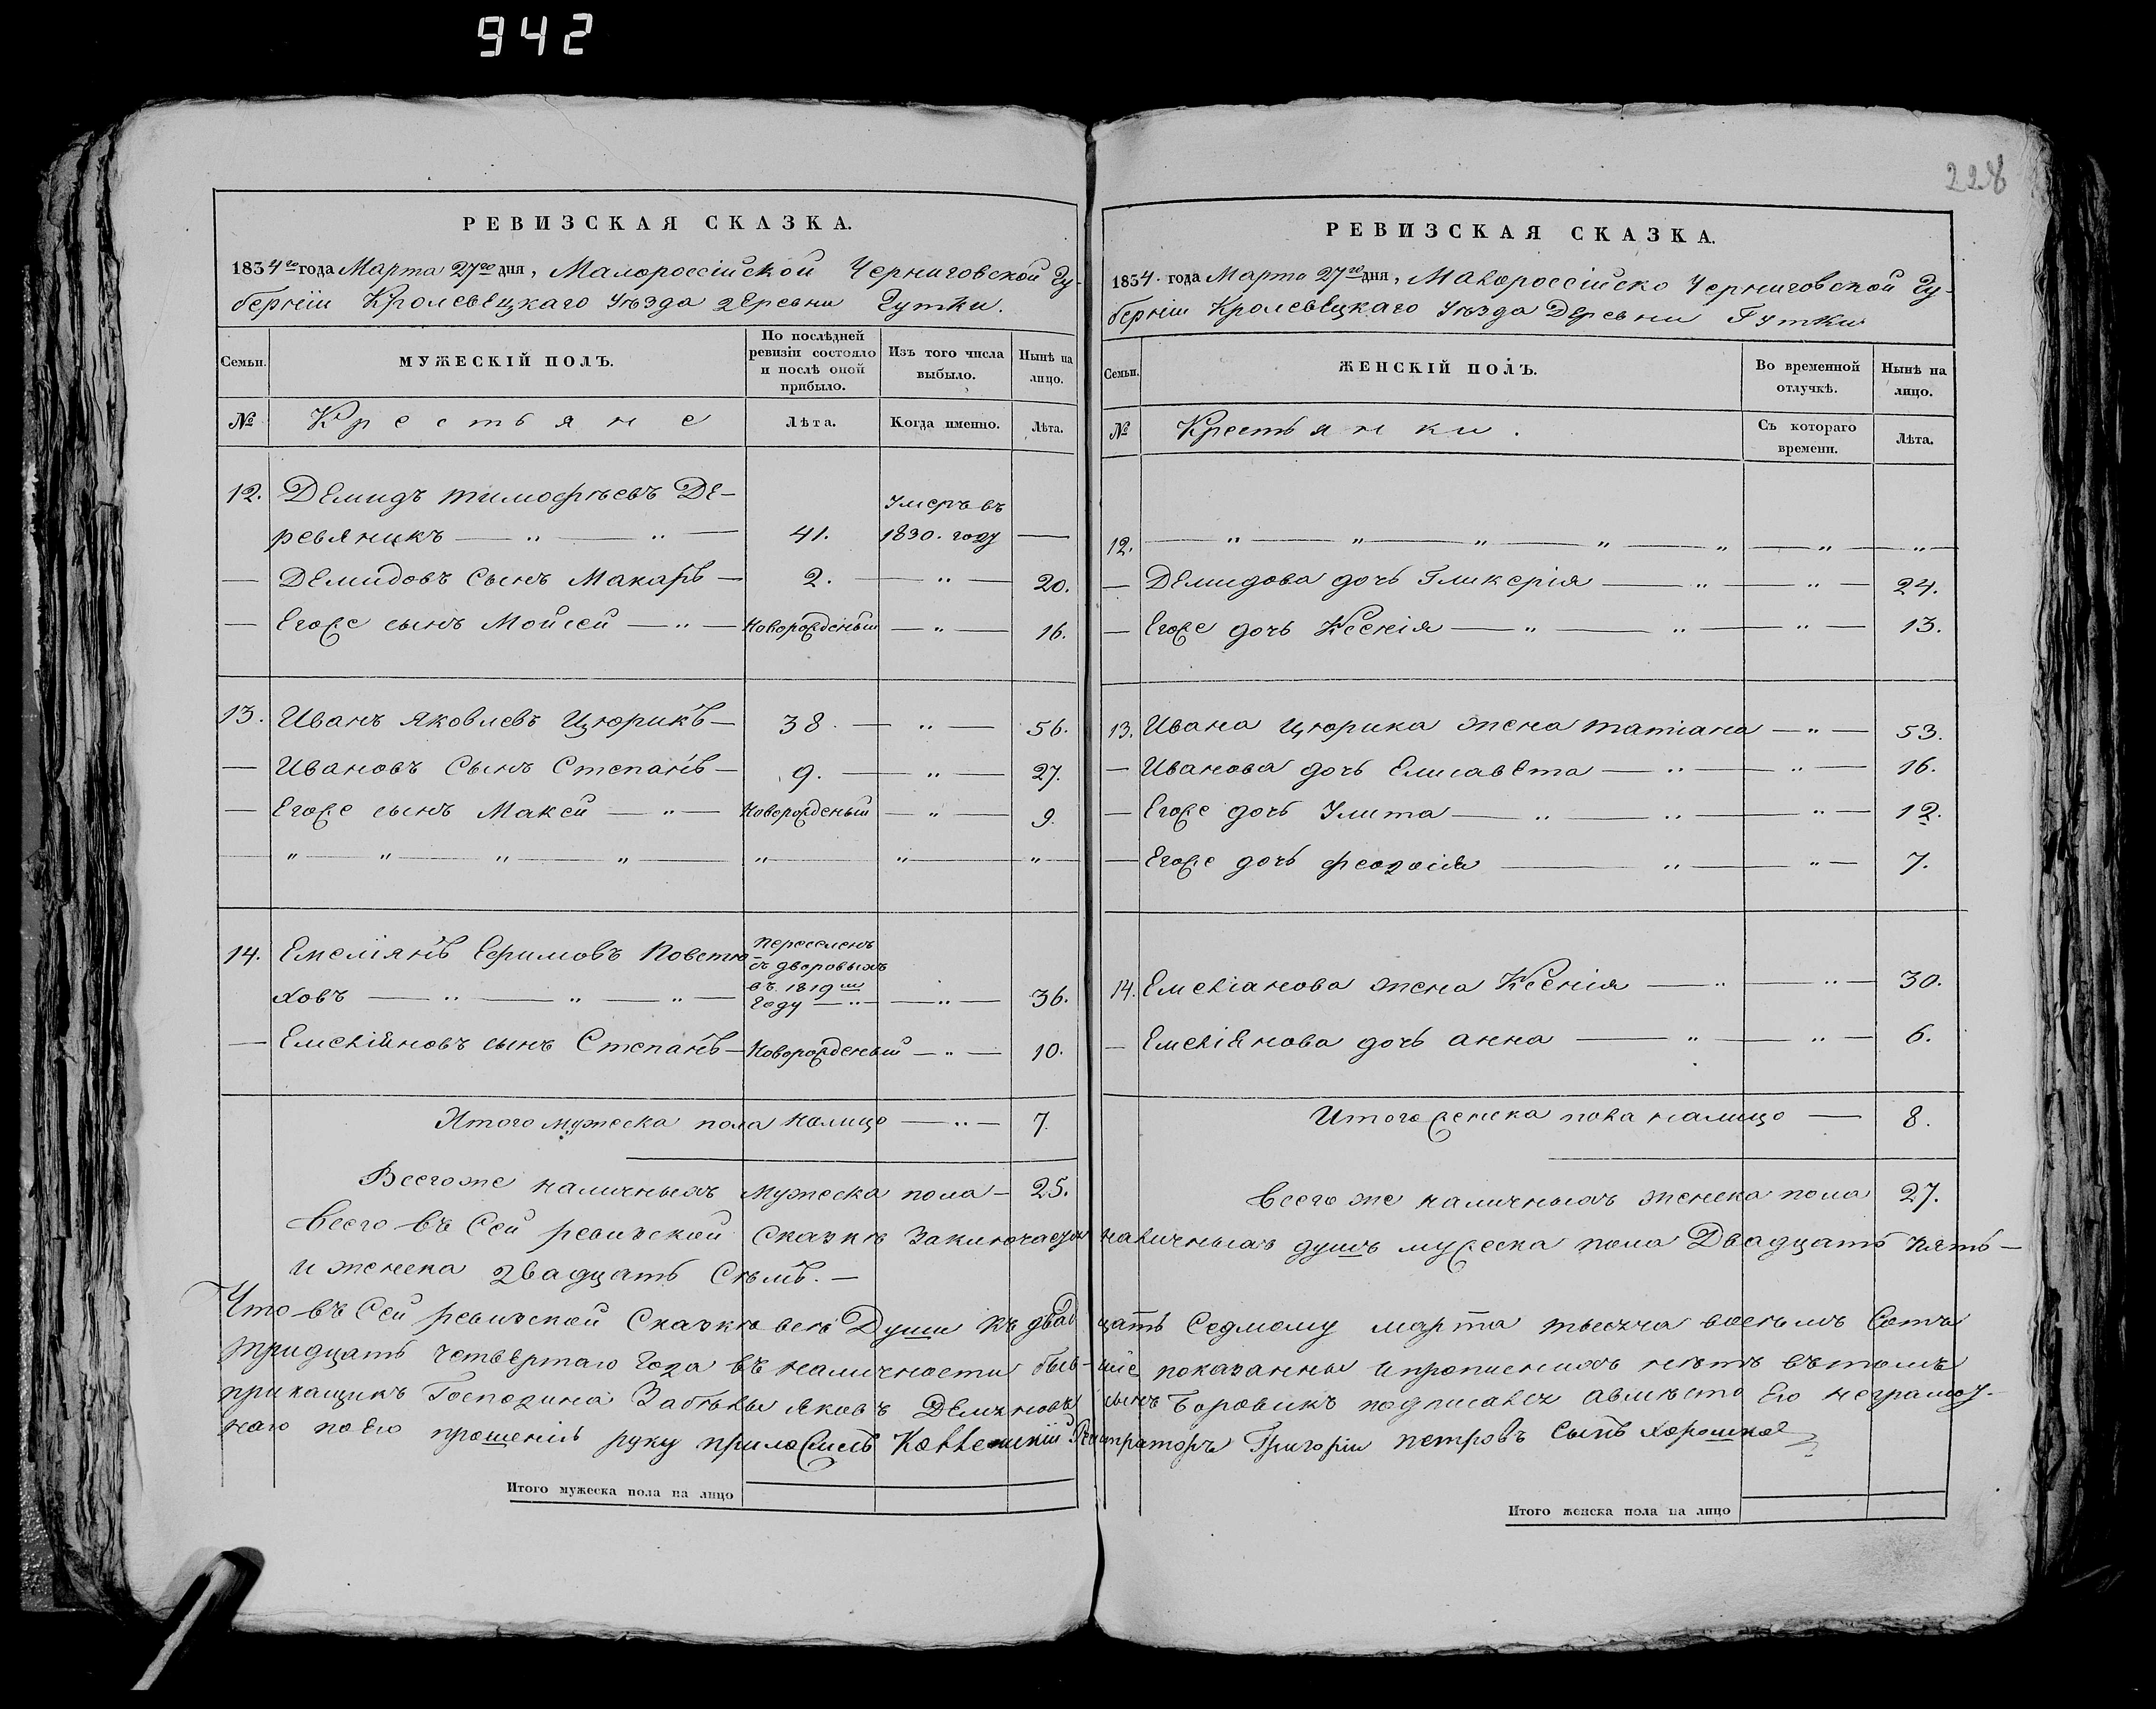 942
228
РЕВИЗСКАЯ СКАЗКА.
1834го года Марта 27го дня, Малороссійской Черниговской Гу-
берніи Кролевецкаго Уѣзда деревни Гутки.
Семьи.
МУЖЕСКІЙ ПОЛЪ.
По послѣдней ревизіи состояло и послѣ оной прибыло.
Изъ того числа выбыло.
Нынѣ на лицо.
№
Крестьяне
Лѣта.
Когда именно.
Лѣта.
12. Демидъ тимофѣевъ Де-
Умеръ въ
ревяникъ — „ — „ — 41. 1830. году —
— Демидовъ Сынъ Макаръ — 2. — „ — 20.
— Егоже сынъ Мойсей — „ — Новорожденый — „ — 16.
13. Иванъ Яковлевъ Цюрикъ — 38. — „ — 56.
— Ивановъ Сынъ Степанъ — 9. — „ — 27.
— Егоже сынъ Максй — „ — Новорожденый — „ — 9.
— „ — „ — „ — „ — „ — „ — „ —
14. Емеліянъ Ефимовъ Повстю-
ховъ — „ — „ — „ — Переселенъ съ дворовыхъ въ 1819м году — „ — „ — 36.
— Емеліяновъ сынъ Степанъ — Новорожденый — „ — 10.
Итого мужеска пола налицо — „ — 7.
Всегоже наличныхъ мужеска пола — 25.
РЕВИЗСКАЯ СКАЗКА.
1834. года Марта 27го дня, Малороссійско Черниговской Гу-
берніи Кролевецкаго Уѣзда Деревни Гутки
Семьи.
ЖЕНСКІЙ ПОЛЪ.
Во временной отлучкѣ.
Нынѣ на лицо.
№
Крестьянки.
Съ котораго времени.
Лѣта.
12. — „ — „ — „ — „ — „ — „ — „ —
— Демидова дочь Гликерія — „ — „ — 24.
— Егоже дочь Ксенія — „ — „ — „ — 13.
13. Ивана Цюрика жена татіана — „ — 53.
— Иванова дочь Елисавета — „ — „ — 16.
— Егоже дочь Улита — „ — „ — „ — 12.
— Егоже дочь феодосія — „ — „ — 7.
14. Емеліанова жена Ксенія — „ — „ — 30.
— Емеліянова дочь анна — „ — „ — 6.
Итого женска пола налицо — 8.
Всего же наличныхъ женска пола 27.
Всего въ Сей ревизской Сказкѣ Заключается наличныхъ душъ мужеска пола Двадцать пять —
и женска двадцать Сѣмъ. —
Что въ Сей ревизской Сказкѣ всѣ Души къ двадцать Седмому марта тысяча восемъ Сотъ
тридцать четвертаго Года въ наличности быв-шіе показанны ипрописныхъ нѣтъ въ томъ
прикащикъ Господина Забѣлы яковъ Деменовъ сынъ Боровикъ подписался авмѣсто Его неграмот-
наго поЕго прошенію руку приложилъ Коллежскій Регистраторъ Григорій петровъ Сынъ
Итого мужеска пола на лицо
Итого женска пола на лицо